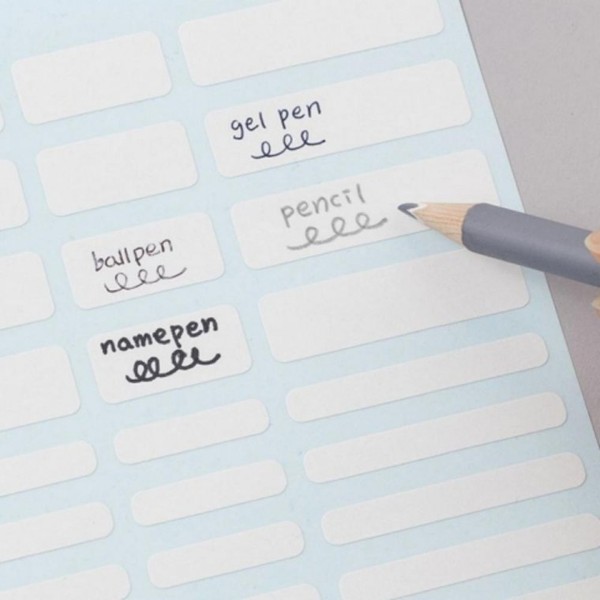 gel pen
pencil
ballpen
namepen